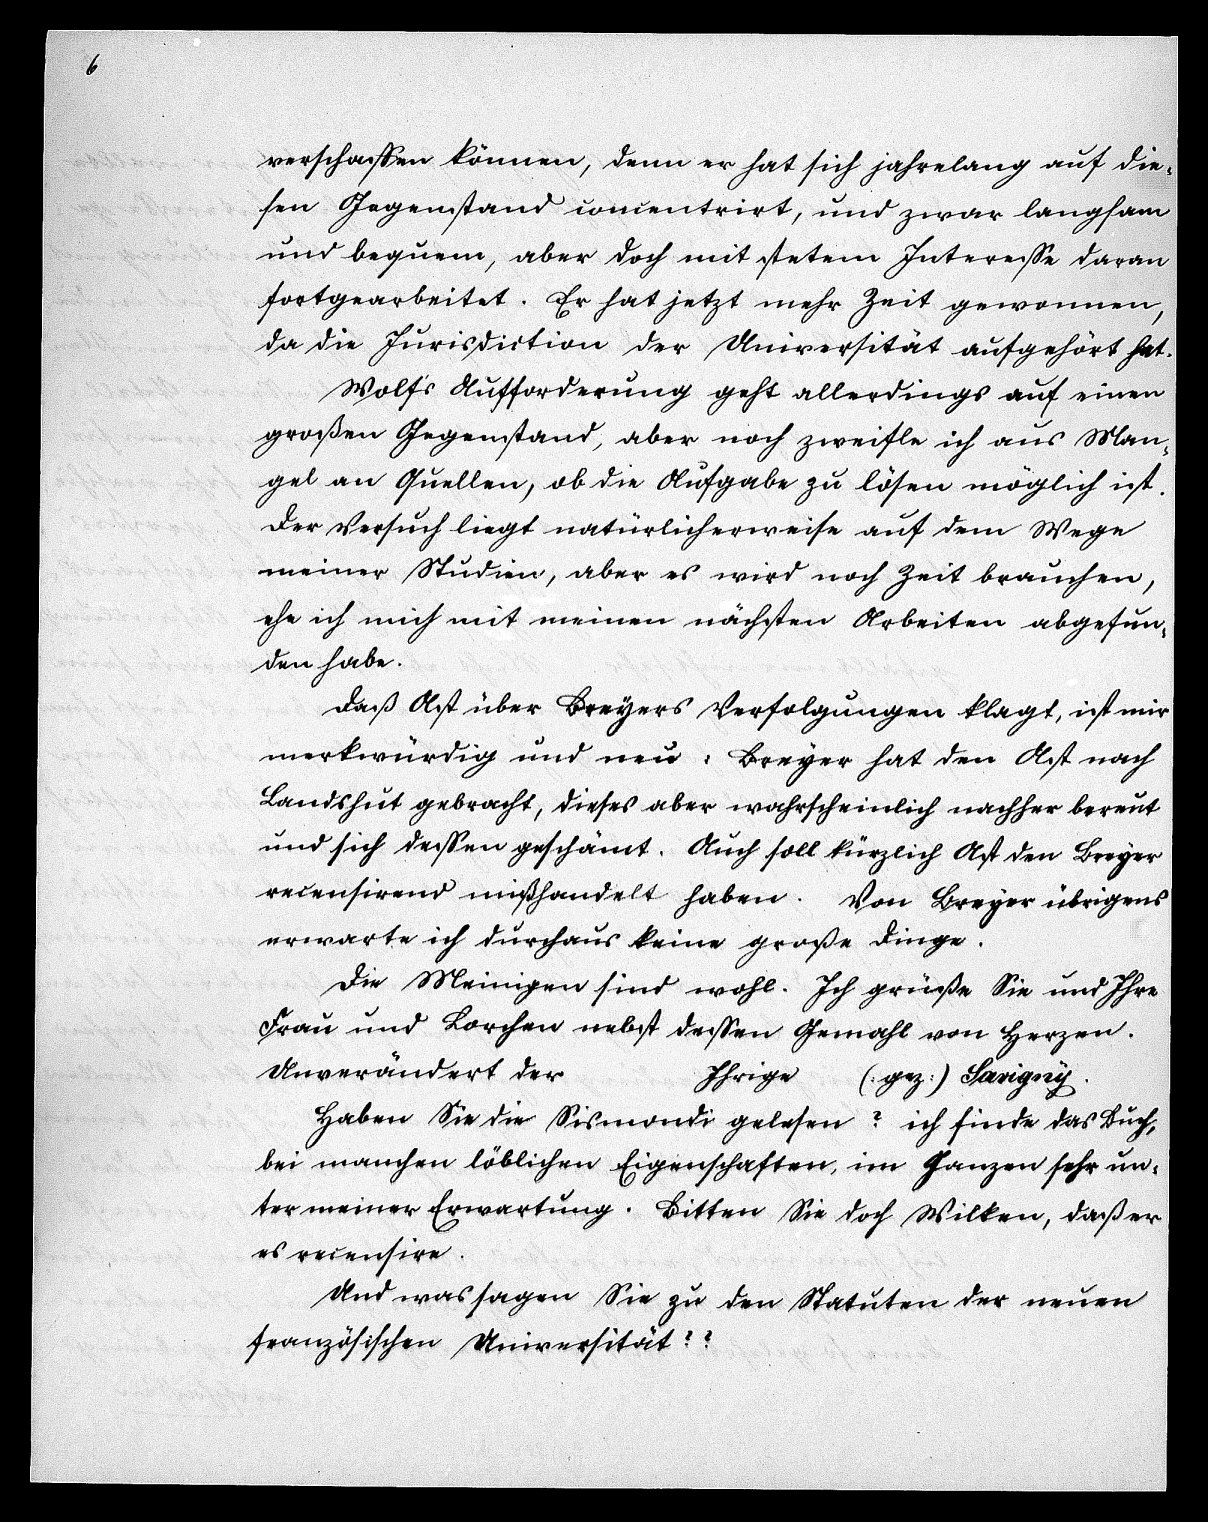 6
verschaffen können, denn er hat sich jahrelang auf die-
sen Gegenstand concentrirt, und zwar langsam
und bequem, aber doch mit stetem Interesse daran
fortgearbeitet. Er hat jetzt mehr Zeit gewonnen,
da die Jurisdiction der Universität aufgehört hat.
Wolfs Aufforderung geht allerdings auf einen
großen Gegenstand, aber noch zweifle ich aus Man-
gel an Quellen, ob die Aufgabe zu lösen möglich ist.
Der Versuch liegt natürlicherweise auf dem Wege
meiner Studien, aber es wird noch Zeit brauchen,
ehe ich mich mit meinen nächsten Arbeiten abgefun-
den habe.
Daß Ast über Breyers Verfolgungen klagt, ist mir
merkwürdig und neu: Breyer hat den Ast nach
Landshut gebracht, dieses aber wahrscheinlich nachher bereut
und sich dessen geschämt. Auch soll kürzlich Ast den Breyer
recensirend mißhandelt haben. Von Breyer übrigens
erwarte ich durchaus keine große Dinge.
Die Meinigen sind wohl. Ich grüße Sie und Ihre
Frau und Lorchen nebst dessen Gemahl von Herzen.
Unverändert der Ihrige (: gez:) Savigny.
Haben Sie die Sismondi gelesen? ich finde das Buch,
bei manchen löblichen Eigenschaften, im Ganzen sehr un-
ter meiner Erwartung. Bitten Sie doch Wilken, daß er
es recensire.
Und was sagen Sie zu den Statuten der neuen
französischen Universität??